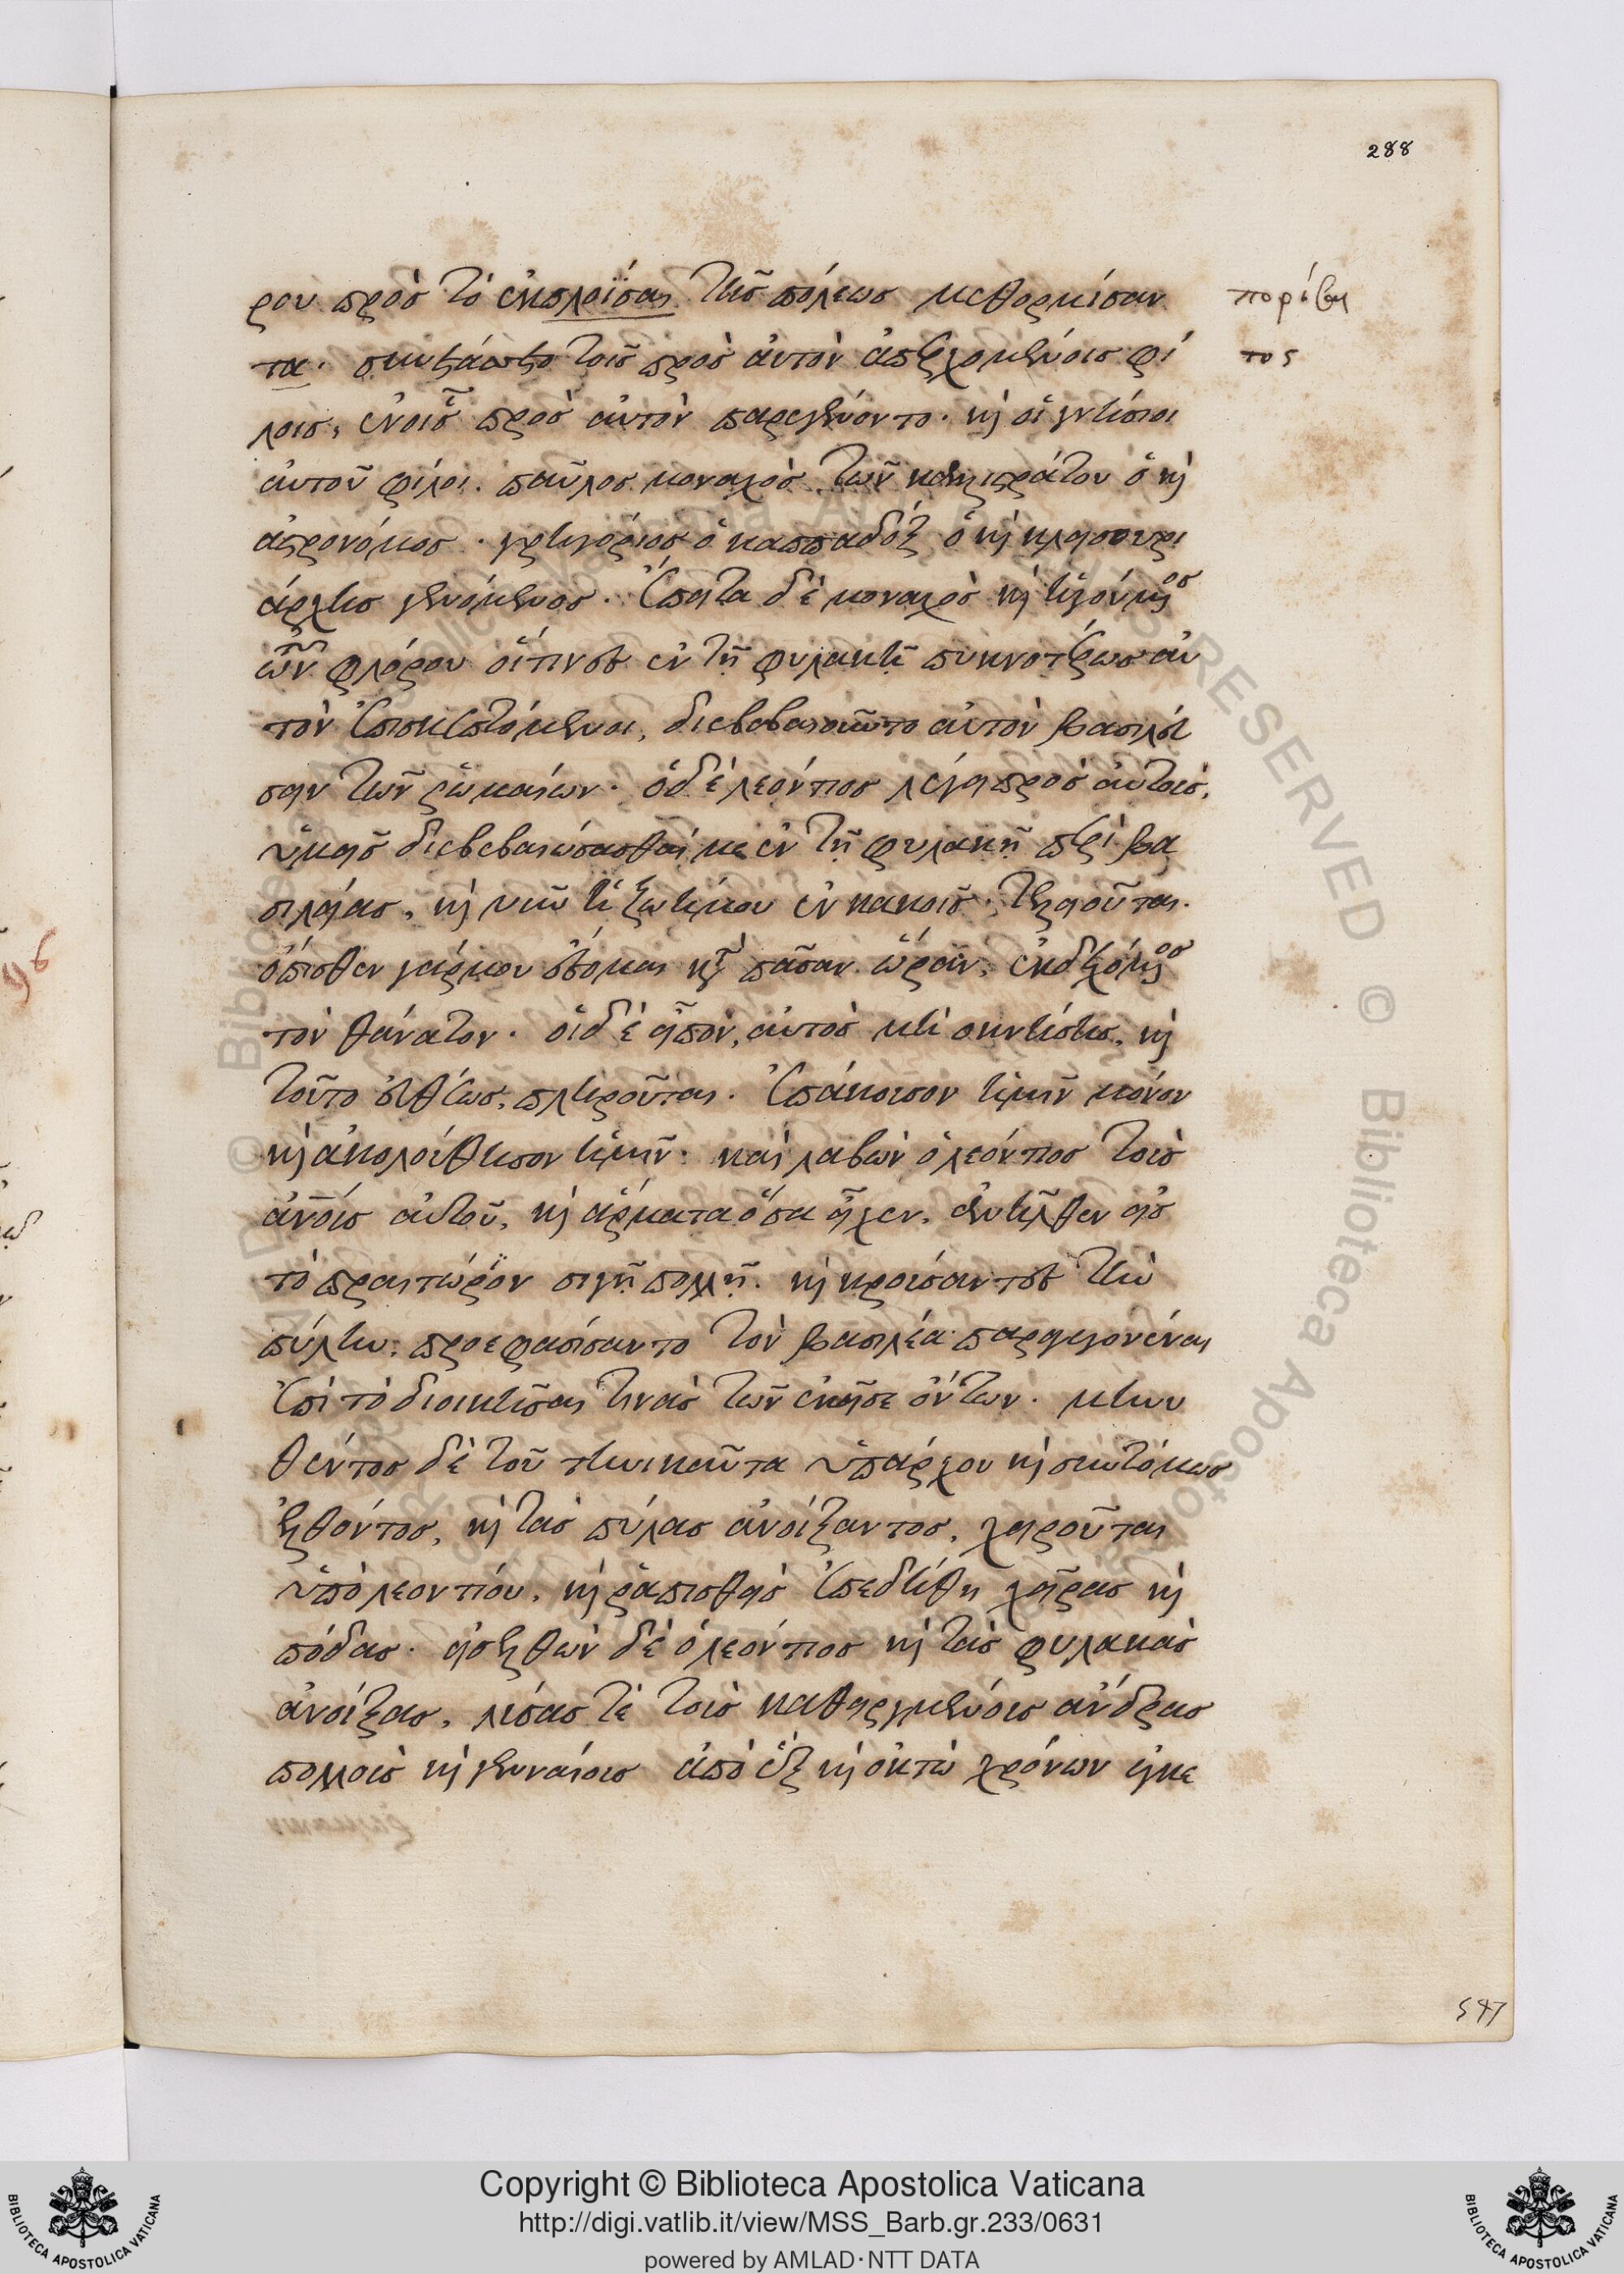 288
ρου πρὸς τὸ ἐκπλοΐσαι τῆς πόλεως μεθορμίσαν
πορθῆναι
τα. συνετάσσετο τοῖς πρὸς αὐτὸν ἀπερχομένοις φί
τος
λοις, ἐν οἷς πρὸς αὐτὸν παρεγένοντο. καὶ οἱ γνήσιοι
αὐτοῦ φίλοι. παῦλος μοναχὸς τῶν καλλιστράτου ὁ καὶ
ἀστρονόμος. γρηγόριος ὁ καππαδόξ, ὁ καὶ κλεισουρι
άρχης γενόμενος. ἔπειτα δὲ μοναχὸς καὶ ἡγούμενος
τῶν φλόρου οἵτινες ἐν τῇ φυλακῇ πυκνοτέρως αὐ
τὸν ἐπισκεπτόμενοι, διεβεβαιοῦντο αὐτὸν βασιλεῦ
σαι τῶν ῥωμαίων. ὁ δὲ λεόντιος λέγει πρὸς αὐτούς,
ὑμεῖς διεβεβαιώσασθαί με ἐν τῇ φυλακῇ περὶ βα
σιλείας, καὶ νῦν ἡ ζωή μου ἐν κακοῖς τελειοῦται.
ὄπισθεν γάρ μου ἕξομαι κατὰ πᾶσαν ὥραν, ἐκδεχόμενος
τὸν θάνατον. οἱ δὲ εἶπον, αὐτὸς μὴ ὀκνήσῃς, καὶ
τοῦτο εὐθέως, πληροῦται. ἐπάκουσον ἡμῖν μόνον
καὶ ἀκολούθησον ἡμῖν. καὶ λαβὼν ὁ λεόντιος τοὺς
ἀνοὺς αὐτοῦ, καὶ ἅρματα ὅσα εἶχεν, ἀνῆλθεν εἰς
τὸ πραιτώριον σιγῇ πολλῇ. καὶ κρούσαντες τὴν
πύλην, προεφασίσαντο τὸν βασιλέα παραγεγονέναι
ἐπὶ τὸ διοικῆσαι τινὰς τῶν ἐκεῖσε ὄντων. μηνυ
θέντος δὲ τοῦ τηνικαῦτα ὑπάρχου καὶ συντόμως
ἐλθόντος, καὶ τὰς πύλας ἀνοίξαντος, χειροῦται
ὑπὸ λεοντίου, καὶ ῥαπισθεὶς ἐπεδέθη χεῖρας καὶ
πόδας. εἰσελθὼν δὲ ὁ λεόντιος καὶ τὰς φυλακὰς
ἀνοίξας, λύσας τὲ τοὺς καθειργμένους ἄνδρας
πολλοὺς καὶ γενναίους ἀπὸ ἓξ καὶ ὀκτὼ χρόνων ἐγκε
547
Copyright © Biblioteca Apostolica Vaticana
http://digi.vatlib.it/view/MSS_Barb.gr.233/0631
powered by AMLAD·NTT DATA